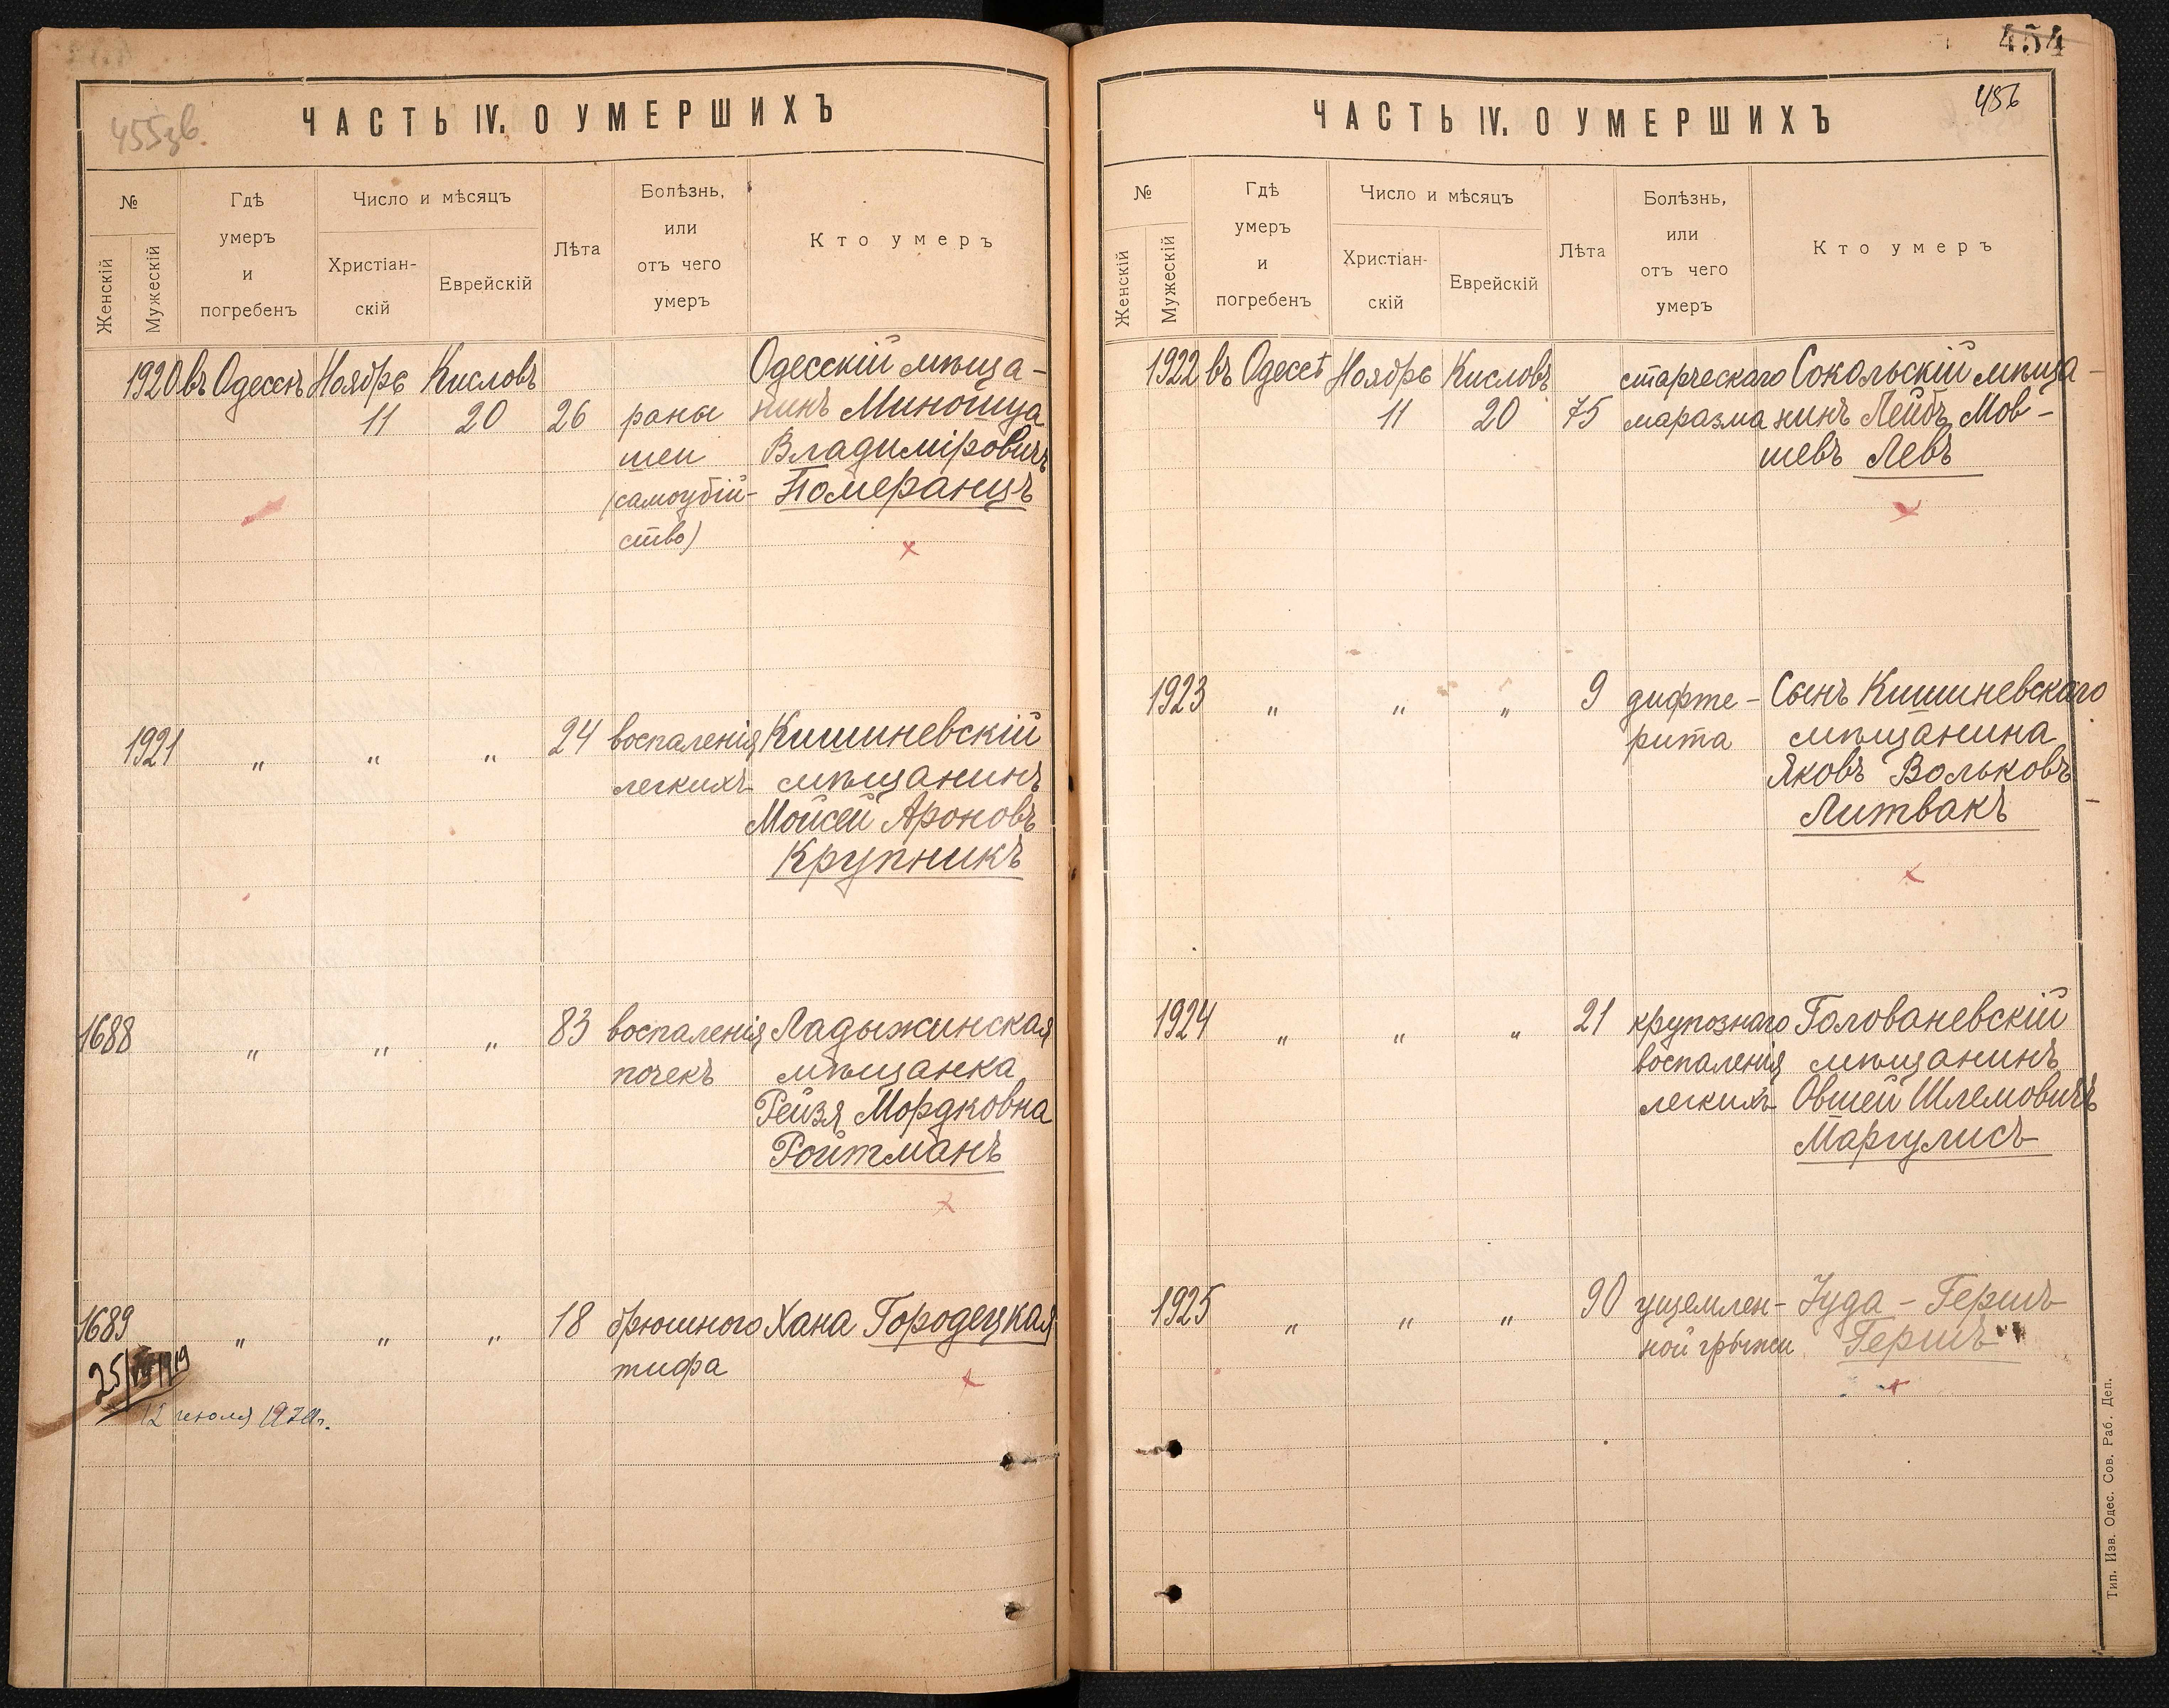 455зв.
ЧАСТЬ IV. О УМЕРШИХЪ
№
Женскій
Мужескій
Гдѣ
умеръ
и
погребенъ
Число и мѣсяцъ
Христіан-
скій
Еврейскій
Лѣта
Болѣзнь,
или
отъ чего
умеръ
Кто умеръ
1920 въ Одессѣ Ноябрь Кисловъ Одесскій мѣща-
11 20 26 раны нинъ
шеи Владиміровичъ
(самоубій- Померанцъ
ство)
1921 " " " 24 воспаленія Кишиневскій
легкихъ мѣщанинъ
Мойсей Ароновъ
Крупникъ
1688 " " " 83 воспаленія Ладыжинская
почекъ мѣщанка
Рейзя Мордковна
Ройтманъ
1689 " " " 18 брюшного Хана Городецкая
тифа
12 июля
454
456
ЧАСТЬ IV. О УМЕРШИХЪ
№
Женскій
Мужескій
Гдѣ
умеръ
и
погребенъ
Число и мѣсяцъ
Христіан-
скій
Еврейскій
Лѣта
Болѣзнь,
или
отъ чего
умеръ
Кто умеръ
1922 въ Одессѣ Ноябрь Кисловъ старческаго Сокольскій мѣща-
11 20 75 маразма нинъ Лейбъ Мов-
шевъ Левъ
1923 " " " 9 дифте- Сынъ Кишиневскаго
рита мѣщанина
Яковъ Вольковъ
Литвакъ
1924 " " " 21 крупознаго Голованевскій
воспаленія мѣщанинъ
легкихъ Овшей Шлемовичъ
Маргулисъ
1925 " " " 90 ущемлен- Іуда - Гершъ
ной грыжи Гершъ
Тип. Изв. Одес. Сов. Раб. Деп.